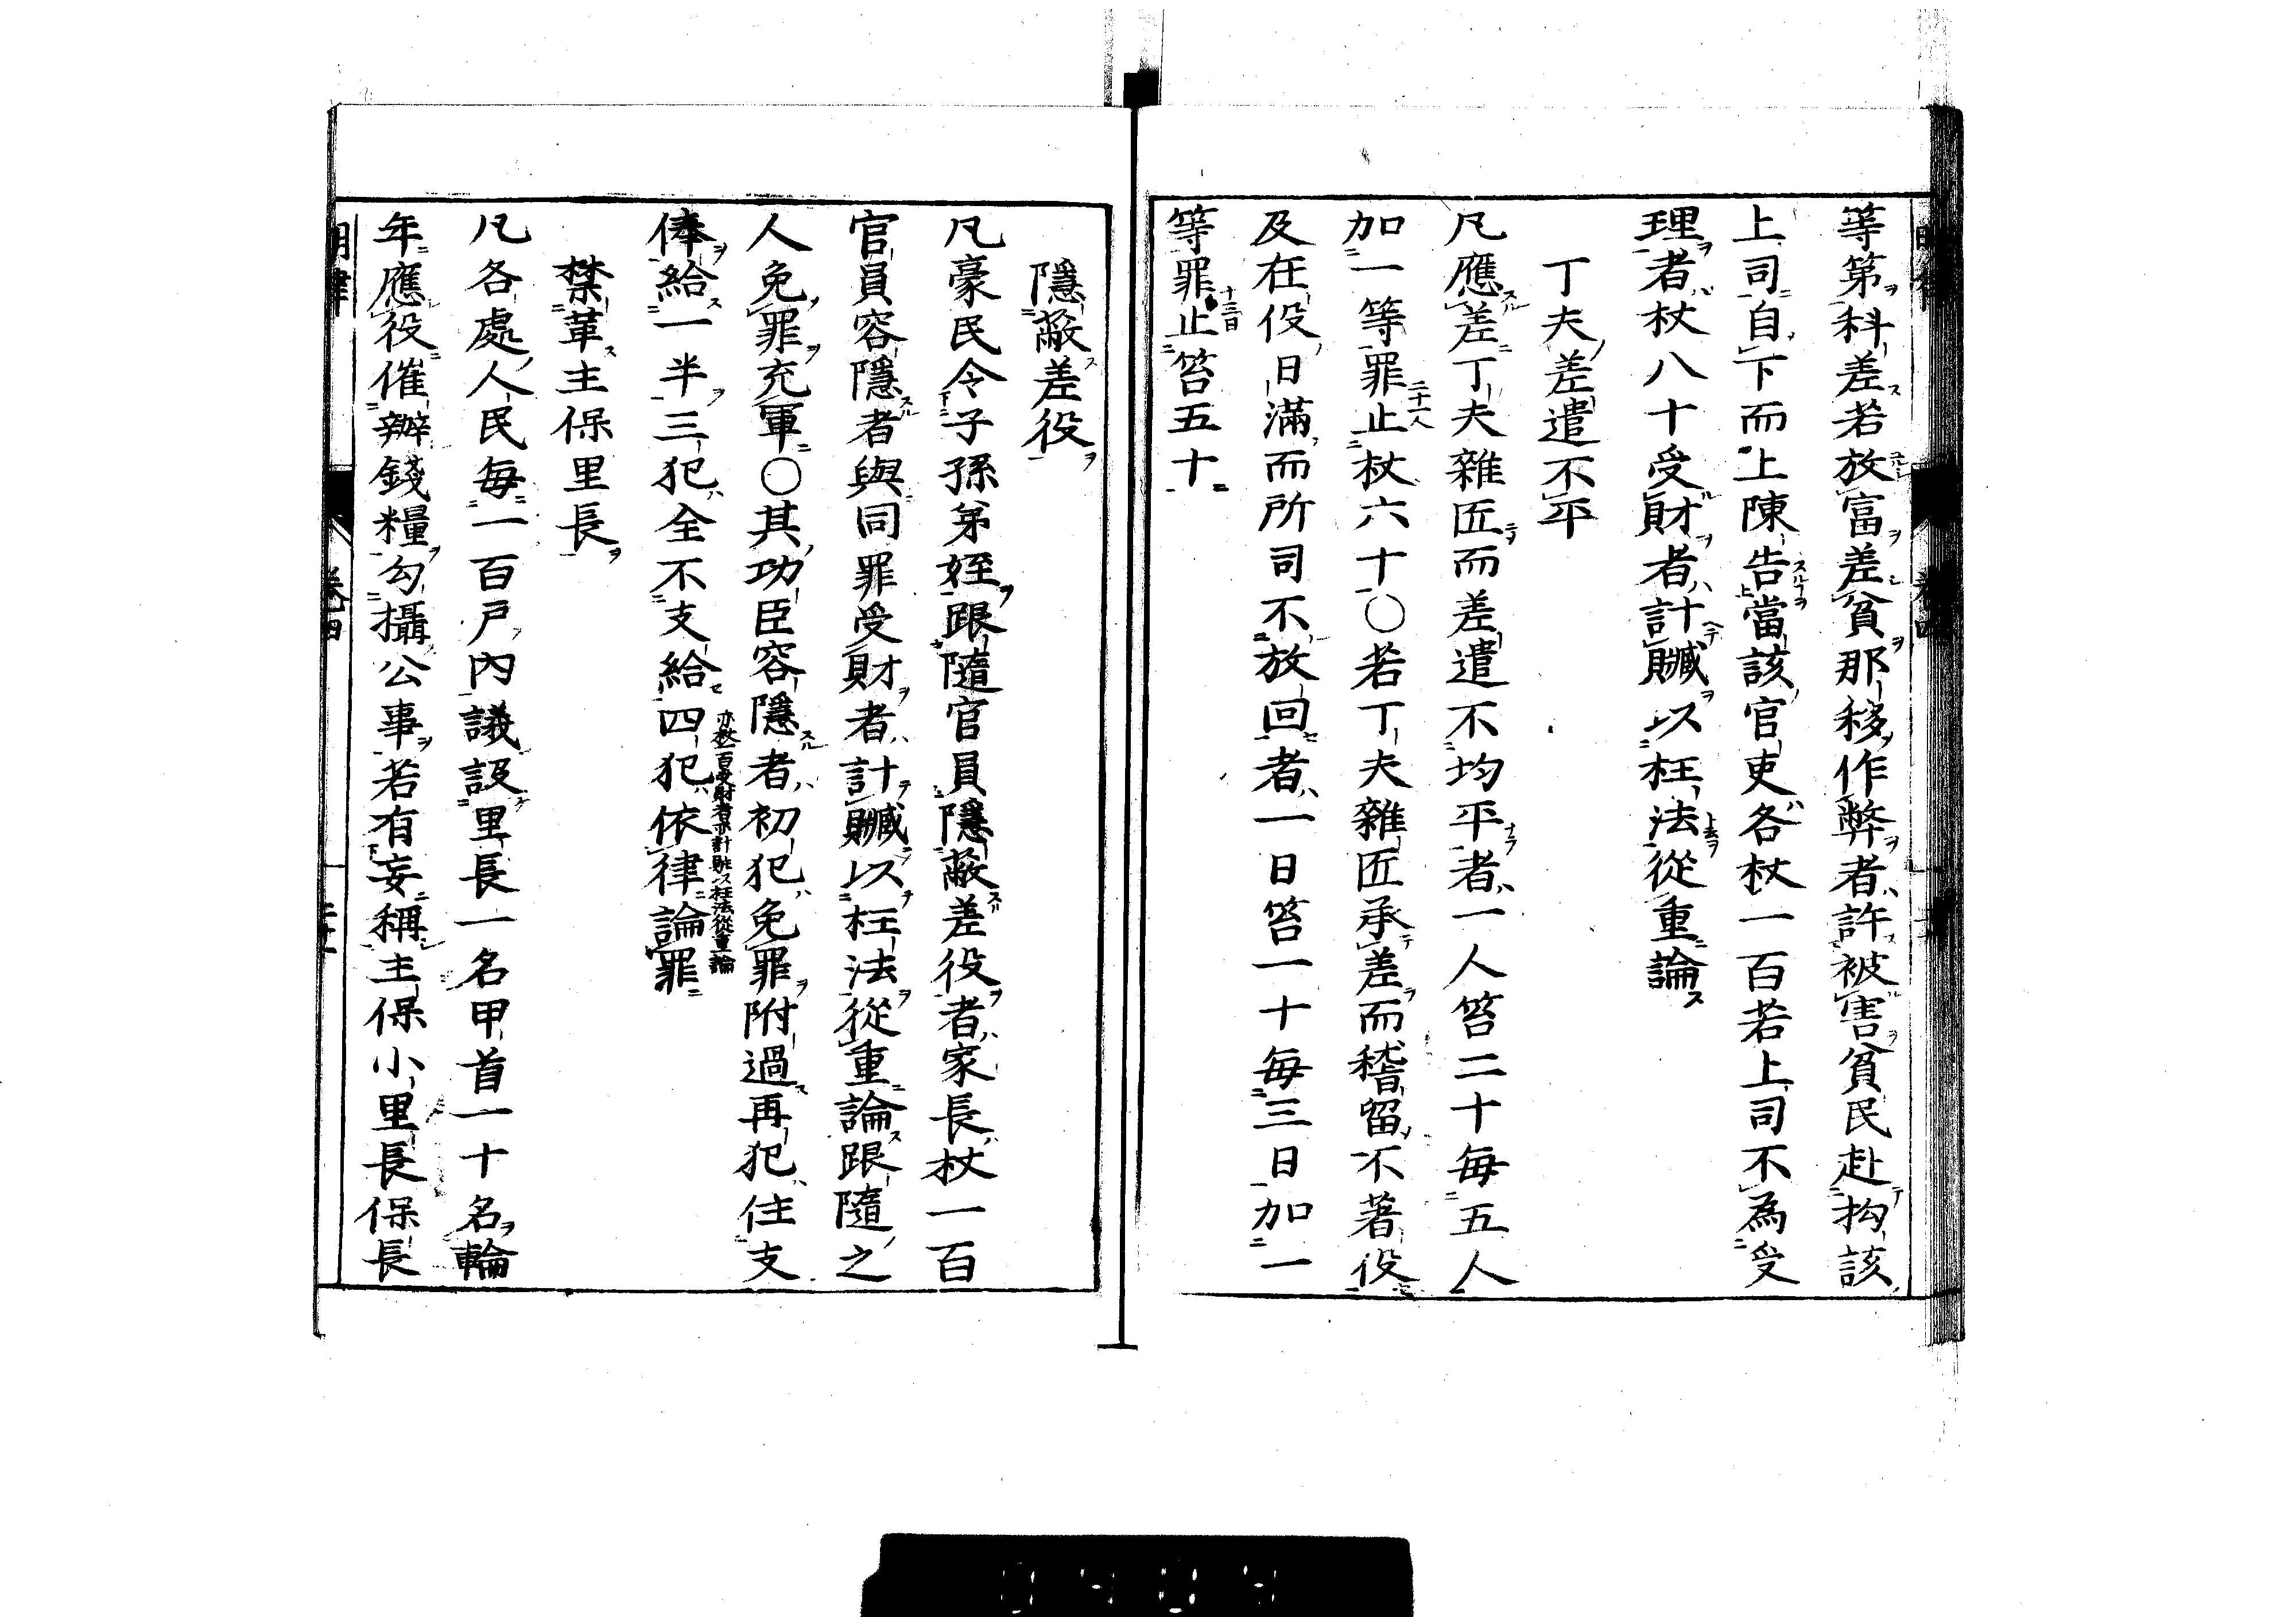 等第科差若放富差貧那移作弊者許被害貧民赴拘該
上司自下而上陳告當該官吏各杖一百若上司不為受
理者杖八十受財者計贓以枉法從重論
丁夫差遣不平
凡應差丁夫雜匠而差遣不均平者一人笞二十每五人
加一等罪止杖六十○若丁夫雜匠承差而稽留不著役
二十一人
及在役日滿而所司不放回者一日笞一十每三日加一
等罪止笞五十
十三日
隱蔽差役
凡豪民令子孫弟姪跟隨官員隱蔽差役者家長杖一百
官員容隱者與同罪受財者計贓以枉法從重論跟隨之
人免罪充軍○其功臣容隱者初犯免罪附過再犯住支
俸給一半三犯全不支給四犯依律論罪
亦杖一百受財者亦計贓以枉法從重論
禁革主保里長
凡各處人民每一百戶內議設里長一名甲首一十名輪
年應役催辦錢糧勾攝公事若有妄稱主保小里長保長
明律
卷四